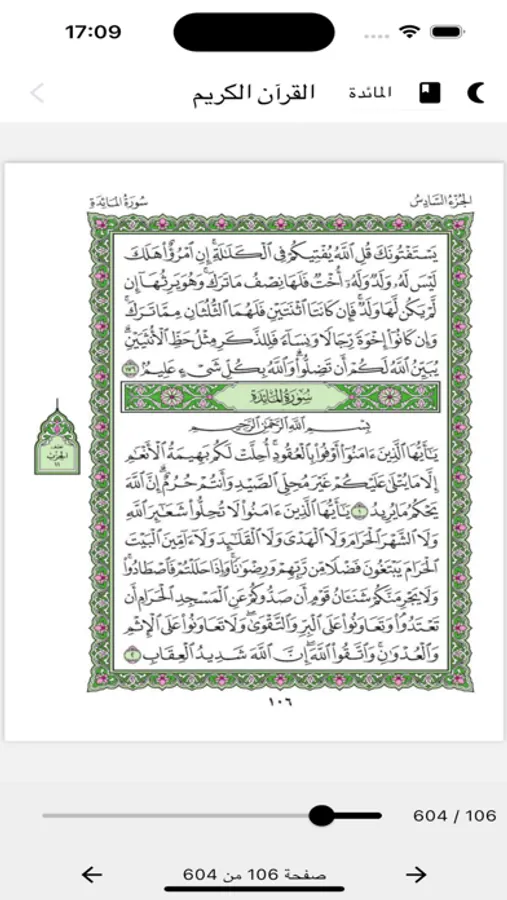 17:09
القرآن الكريم
المائدة
الجزء السادس
سورة المائدة
يَسْتَفْتُونَكَ قُلِ اللَّهُ يُفْتِيكُمْ فِي الْكَلَالَةِ إِنِ امْرُؤٌا هَلَكَ
لَيْسَ لَهُ وَلَدٌ وَلَهُ أُخْتٌ فَلَهَا نِصْفُ مَا تَرَكَ وَهُوَ يَرِثُهَا إِن
لَّمْ يَكُن لَّهَا وَلَدٌ فَإِن كَانَتَا اثْنَتَيْنِ فَلَهُمَا الثُّلُثَانِ مِمَّا تَرَكَ
وَإِن كَانُوا إِخْوَةً رِّجَالًا وَنِسَاءً فَلِلذَّكَرِ مِثْلُ حَظِّ الْأُنثَيَيْنِ
يُبَيِّنُ اللَّهُ لَكُمْ أَن تَضِلُّوا وَاللَّهُ بِكُلِّ شَيْءٍ عَلِيمٌ ١٧٦
سُورَةُ الْمَائِدَةِ
بِسْمِ اللَّهِ الرَّحْمَٰنِ الرَّحِيمِ
يَا أَيُّهَا الَّذِينَ ءَامَنُوا أَوْفُوا بِالْعُقُودِ أُحِلَّتْ لَكُم بَهِيمَةُ الْأَنْعَامِ
إِلَّا مَا يُتْلَى عَلَيْكُمْ غَيْرَ مُحِلِّي الصَّيْدِ وَأَنتُمْ حُرُمٌ إِنَّ اللَّهَ
يَحْكُمُ مَا يُرِيدُ ١ يَا أَيُّهَا الَّذِينَ ءَامَنُوا لَا تُحِلُّوا شَعَائِرَ اللَّهِ
وَلَا الشَّهْرَ الْحَرَامَ وَلَا الْهَدْيَ وَلَا الْقَلَائِدَ وَلَا ءَامِّينَ الْبَيْتَ
الْحَرَامَ يَبْتَغُونَ فَضْلًا مِّن رَّبِّهِمْ وَرِضْوَانًا وَإِذَا حَلَلْتُمْ فَاصْطَادُوا
وَلَا يَجْرِمَنَّكُمْ شَنَآنُ قَوْمٍ أَن صَدُّوكُمْ عَنِ الْمَسْجِدِ الْحَرَامِ أَن
تَعْتَدُوا وَتَعَاوَنُوا عَلَى الْبِرِّ وَالتَّقْوَى وَلَا تَعَاوَنُوا عَلَى الْإِثْمِ
وَالْعُدْوَانِ وَاتَّقُوا اللَّهَ إِنَّ اللَّهَ شَدِيدُ الْعِقَابِ ٢
الحزب
١١
١٠٦
604 / 106
صفحة 106 من 604